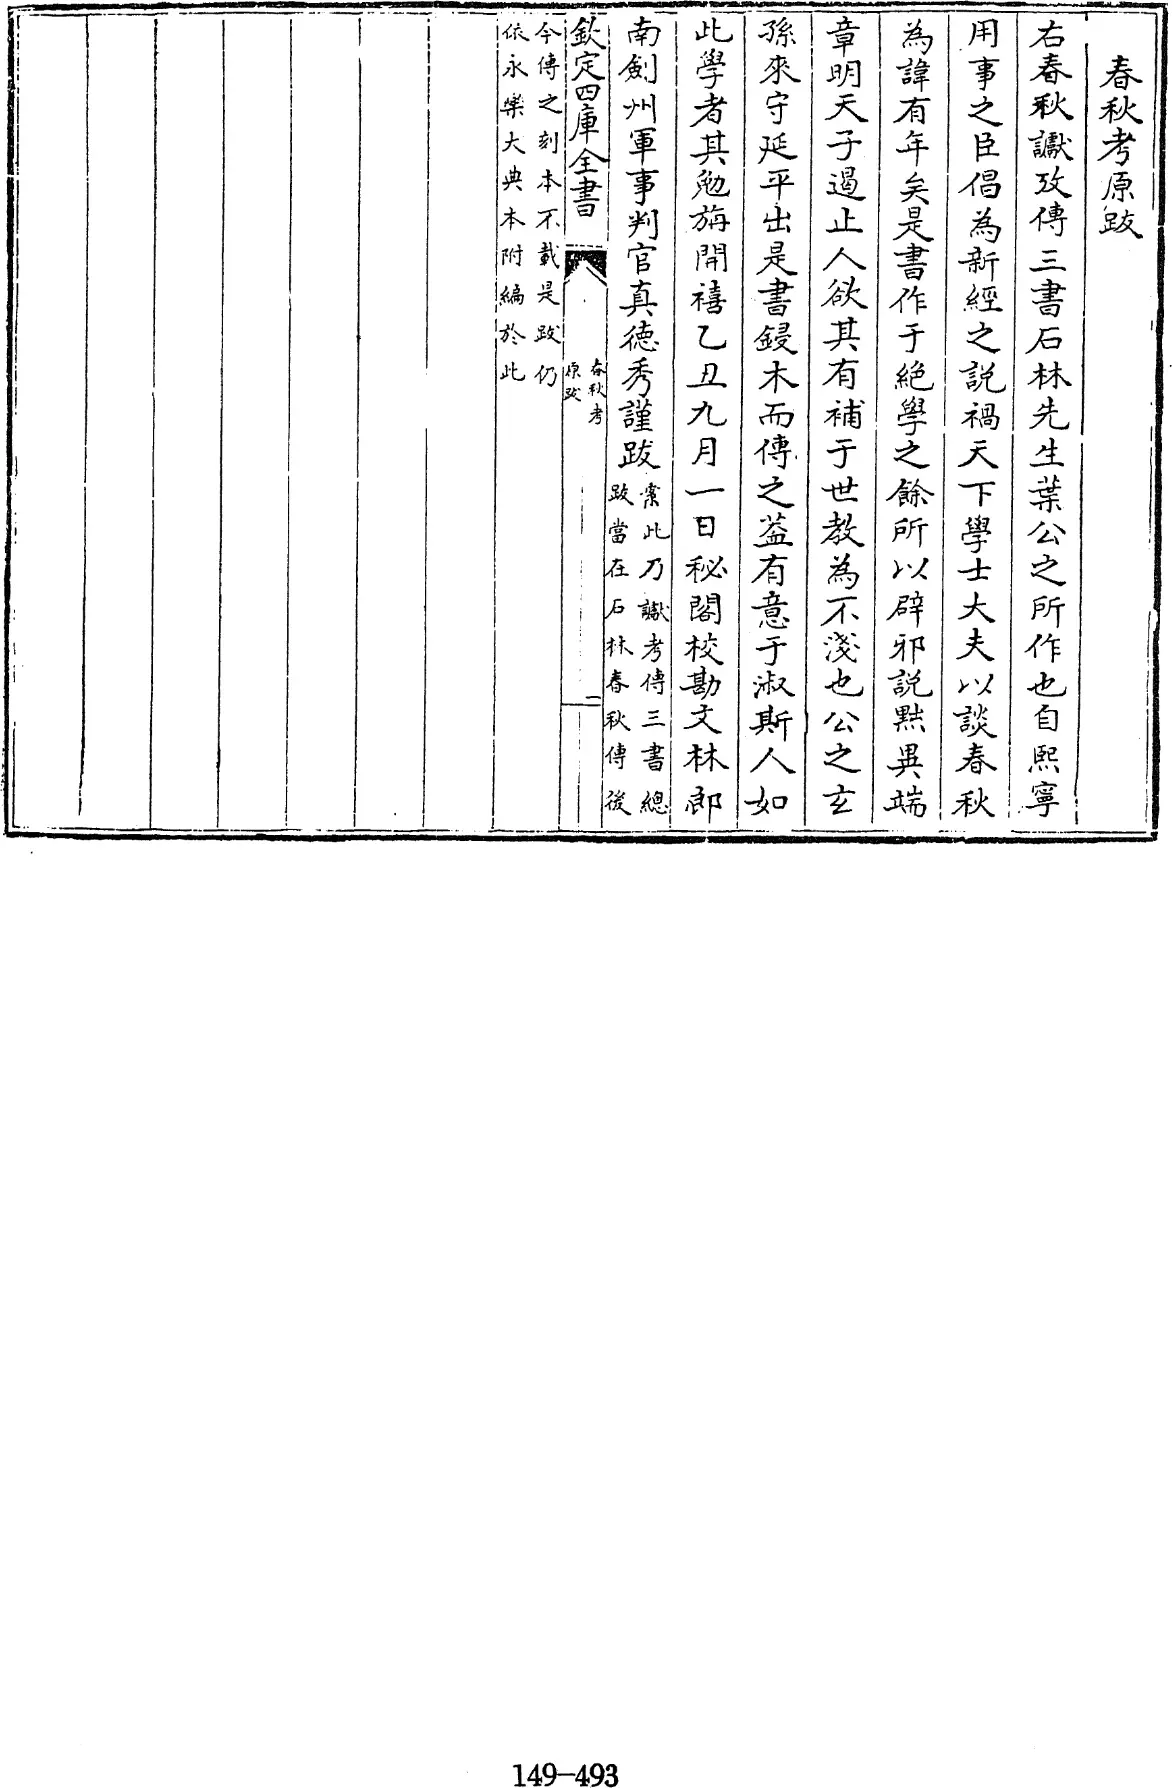 春秋考原跋
右春秋讞攷傳三書石林先生葉公之所作也自熙寧
用事之臣倡為新經之説禍天下學士大夫以談春秋
為諱有年矣是書作于絶學之餘所以辟邪説黜異端
章明天子遏止人欲其有補于世教為不淺也公之玄
孫來守延平出是書鋟木而傳之葢有意于淑斯人如
此學者其勉旃開禧乙丑九月一日秘閣校勘文林郎
南劍州軍事判官真德秀謹跋
案此乃讞考傳三書總
跋當在石林春秋傳後
欽定四庫全書
春秋考
原跋
二
今傳之刻本不載是跋仍
依永樂大典本附編於此
149-493